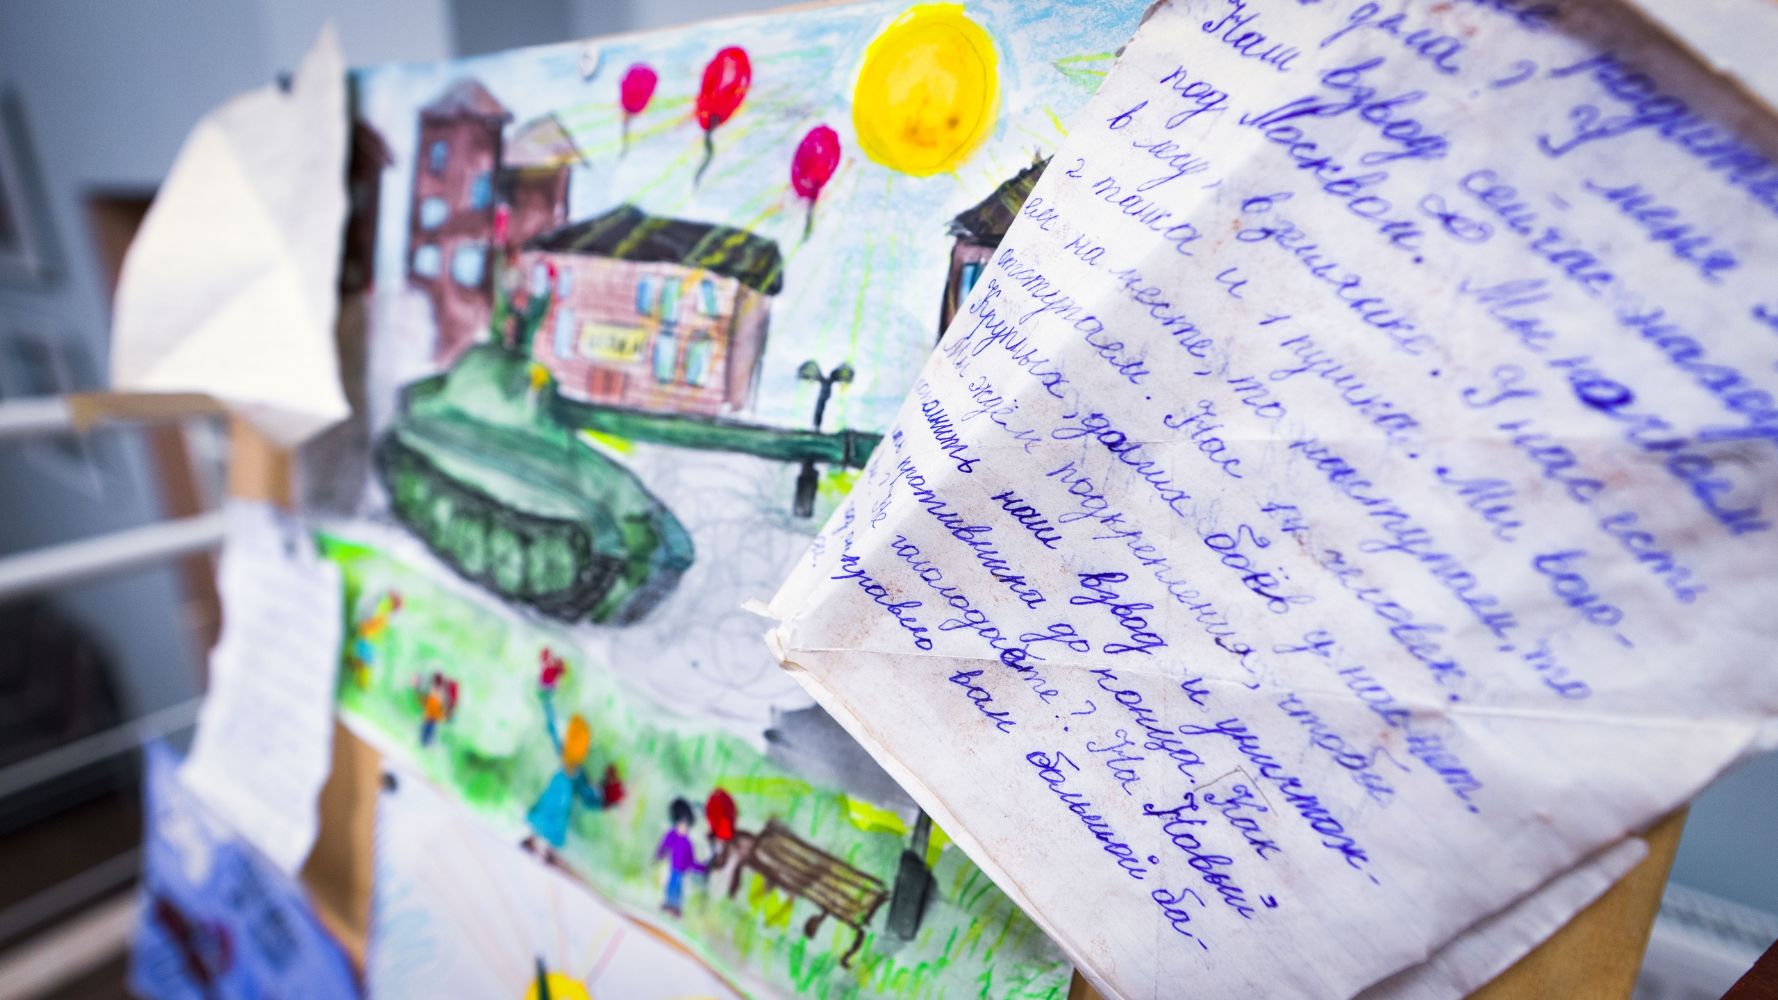 дела? У меня
Наш взвод сейчас
под Москвой. Мы ночуем
в лесу, в землянке. У нас есть
2 танка и 1 пушка. Мы вою-
ем на месте, то наступаем, то
отступаем. Нас 14 человек.
Крупных, долгих боёв у нас нет.
Мы ждём подкрепления, чтобы
наш взвод и уничтож-
противника до конца. Как
Не голодаете? На Новый
год отправлю вам большой ба-